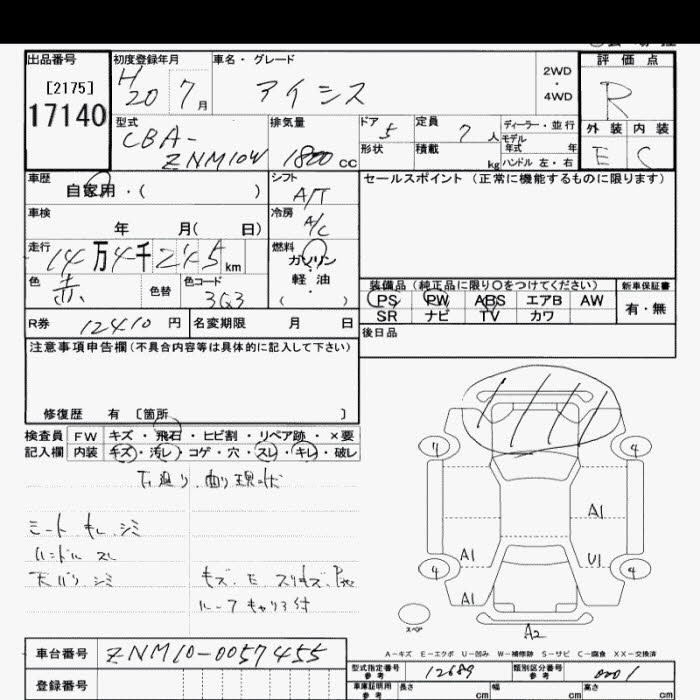 出品番号
[2175]
17140
初度登録年月
H
20 7月
車名・グレード
アイシス
2WD
・
4WD
評価点
R
外装 内装
E C
型式
CBA-
ZNM10W
排気量
1800 cc
ドア 5
形状
定員 7 人
積載 kg
ディーラー・並行
モデル
年式 年
ハンドル 左・右
車歴
自家用・( )
シフト
A/T
セールスポイント (正常に機能するものに限ります)
車検
年 月( 日)
冷房
A/C
走行
14万4千245km
燃料
ガソリン
・
軽油
( )
色
赤
色替
色コード
3Q3
装備品 (純正品に限り○をつけてください)
新車保証書
PS PW ABS エアB AW
有・無
SR ナビ TV カワ
R券 12410 円
名変期限 月 日
後日品
注意事項申告欄 (不具合内容等は具体的に記入して下さい)
修復歴 有 [箇所 ]
検査員
記入欄
FW キズ・飛石・ヒビ割・リペア跡・×要
内装 キズ・汚レ・コゲ・穴・スレ・キレ・破レ
下廻り 曲り 現状
シート キレ シミ
ハンドル スレ
天バリ シミ
ルーフキャリア付
4 4
A1
A1 U1
4 4
A1
スペア
A2
A－キズ E－エクボ U－凹み W－補修跡 S－サビ C－腐食 XX－交換済
車台番号 ZNM10-0057455
登録番号
型式指定番号
参考
12689
類別区分番号
参考
0001
車庫証明用
参考
長さ cm
幅 cm
高さ cm